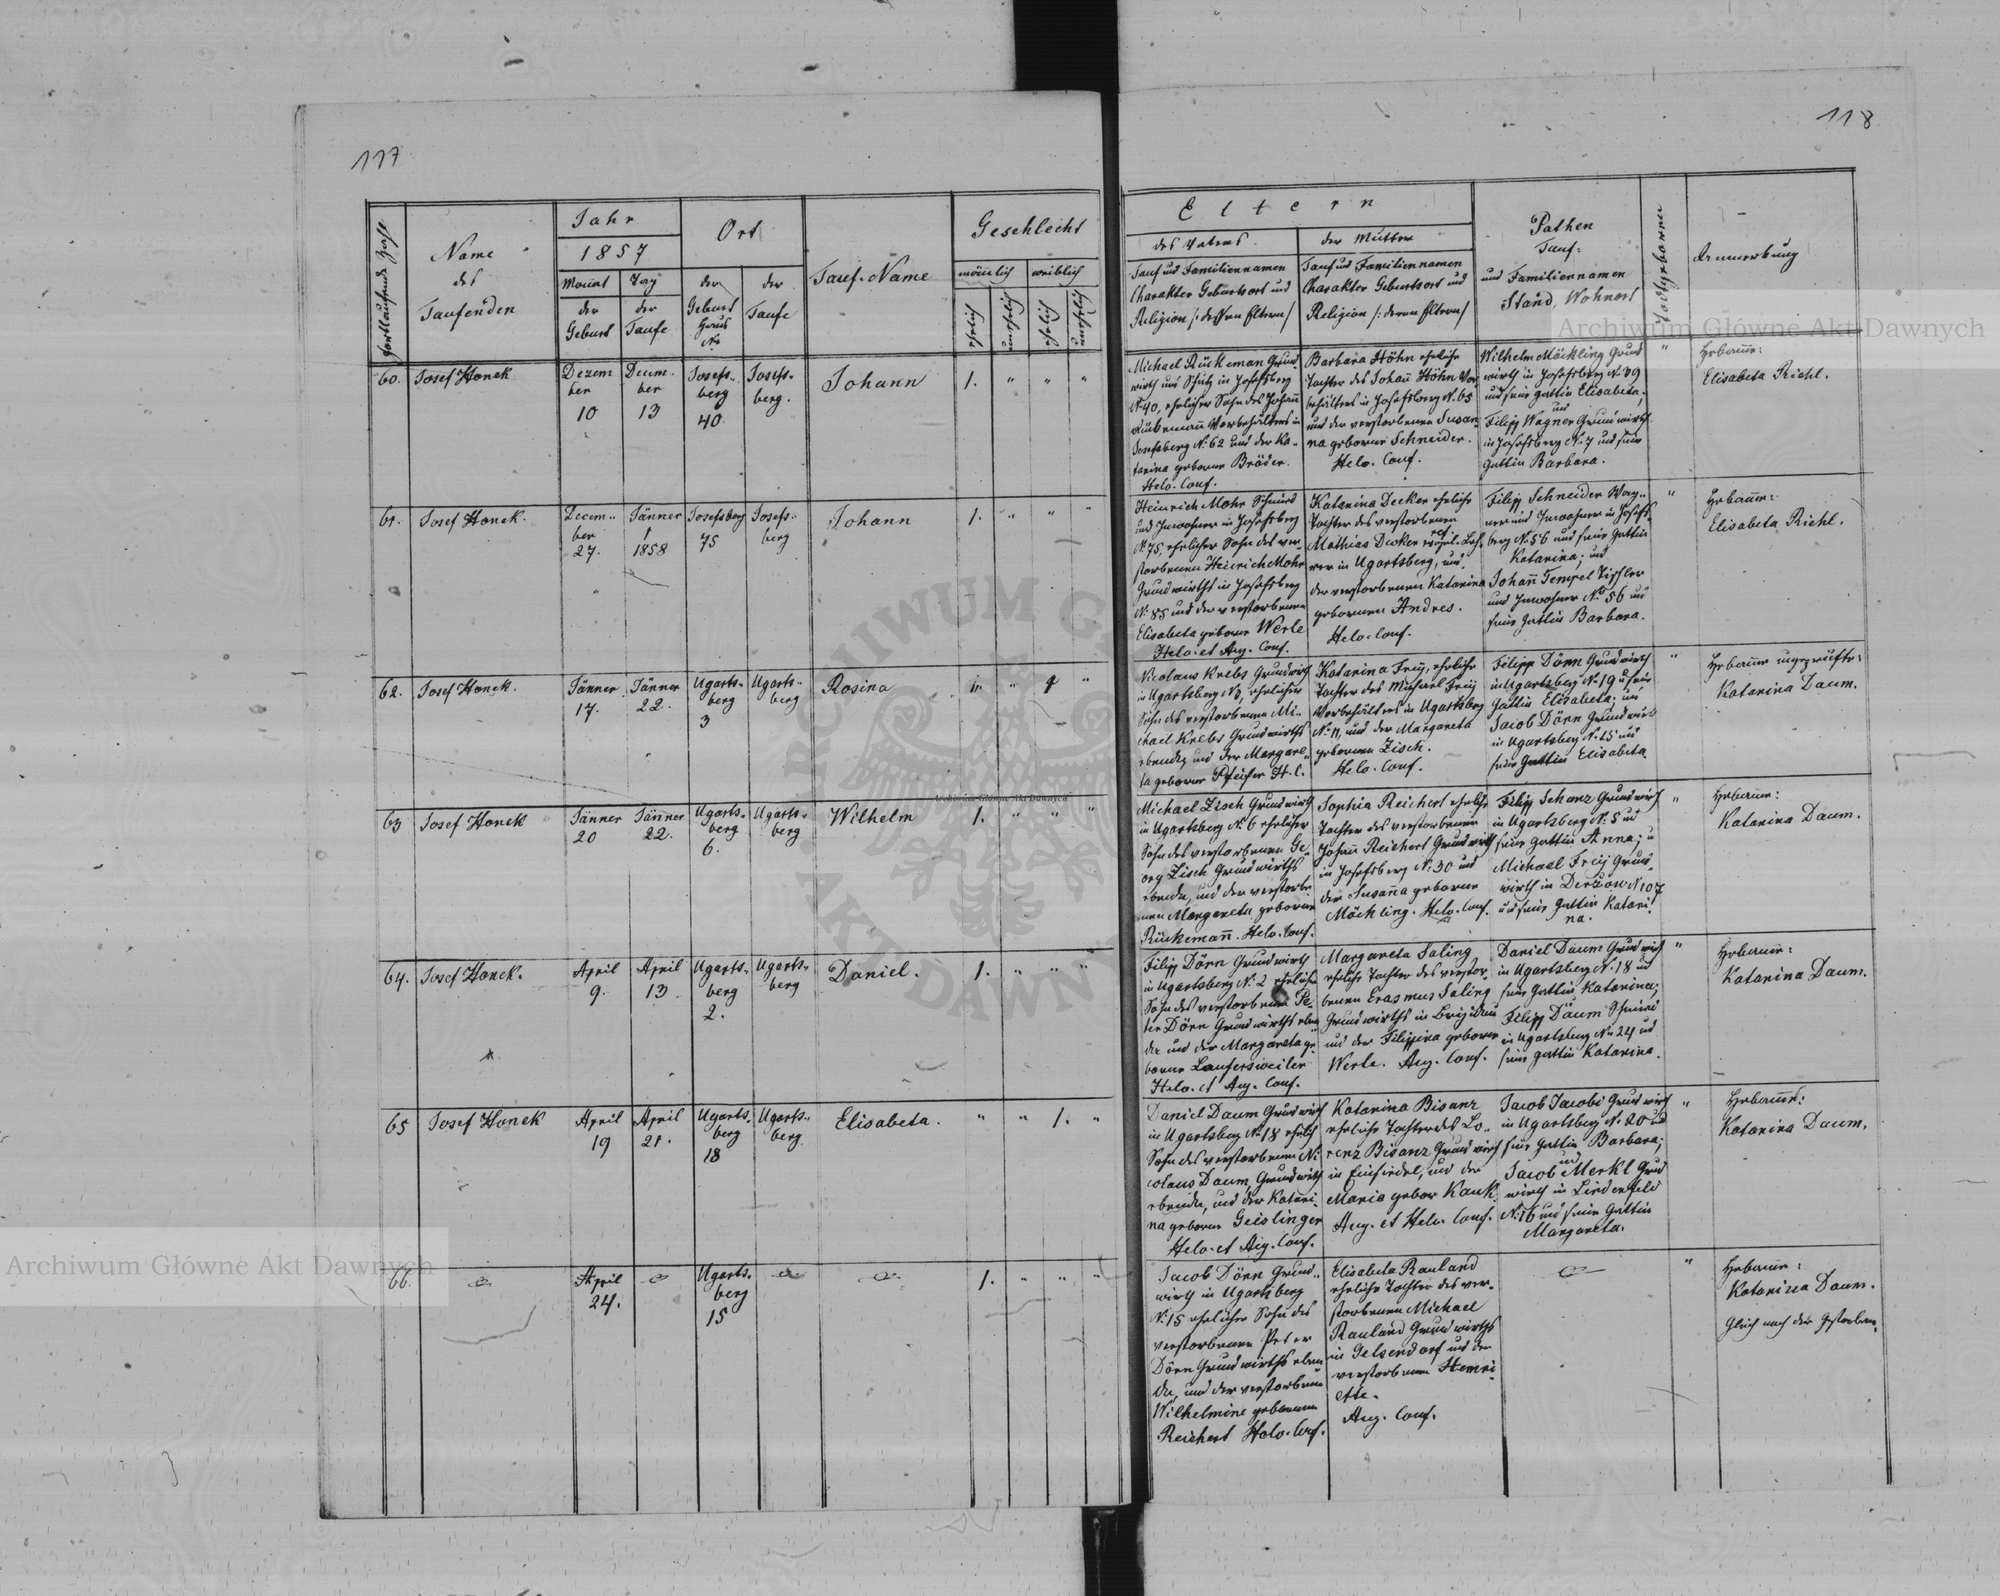 117
118
Fortlaufende Zahl
Name
des
Taufenden
Jahr
1857
Monat
der
Geburt
Tag
der
Taufe
Ort
der
Geburt
Haus
No
der
Taufe
Tauf-Name
Geschlecht
männlich
weiblich
ehelich
unehelich
ehelich
unehelich
Eltern
des Vaters
Tauf und Familiennamen
Charakter Geburtsort und
Religion /: dessen Eltern /
der Mutter
Tauf und Familiennamen
Charakter Geburtsort und
Religion /: deren Eltern /
Pathen
Tauf-
und Familiennamen
Stand, Wohnort
todtgeboren
Anmerkung
60.
Josef Honek
Dezem
ber
10
Decem-
ber
13
Josefs-
berg
40
Josefs-
berg.
Johann
1. " " "
Michael Rückeman Grund-
wirth und Schütz in Josefsberg
No 40, ehelicher Sohn des Johann
Rückemañ Vorbehälters in
Josefsberg No. 62 und der Ka-
tarina geborne Bräder.
Helv. Conf.
Barbara Höhn eheliche
Tochter des Johañ Höhn Vor-
behälters in Josefsberg No. 65
und der verstorbenen Susan-
na geborne Schneider.
Helv. Conf.
Wilhelm Möckling Grund
wirth in Josefsberg No. 39
und seine Gattin Elisabeta,
und
Filipp Wagner Grundwirth
in Josefsberg No. 7 und seine
Gattin Barbara.
"
Hebame:
Elisabeta Riehl.
61.
Josef Honek.
Decem-
ber
27.
Jänner
1
1858
Josefsberg
75
Josefs-
berg
Johann
1. " " "
Heinrich Mohr Schmied
und Inwohner in Josefsberg
No 75, ehelicher Sohn des ver-
storbenen Heinrich Mohr
Grundwirths in Josefsberg
No. 85 und der verstorbenen
Elisabeta geborne Werle
Helv. et Aug. Conf.
Katarina Decker eheliche
Tochter des verstorbenen
Mathias Decker evangel. Leh-
rer in Ugartsberg, und
der verstorbenen Katarina
gebornen Andres.
Helv. Conf.
Filipp Schneider Wag-
ner und Inwohner in Josefs-
berg No. 56 und seine Gattin
Katarina; und
Johañ Tempel Tischler
und Inwohner No 56 und
seine Gattin Barbara.
"
Hebame:
Elisabeta Riehl.
62.
Josef Honek.
Jänner
17.
Jänner
22.
Ugarts-
berg
3
Ugarts-
berg
Rosina
" " 1 "
Nicolaus Krebs Grundwirth
in Ugartsberg No 3, ehelicher
Sohn des verstorbenen Mi-
chael Krebs Grundwirths
ebenda, und der Margare-
ta geborne Pfeifer H. C.
Katarina Freÿ, eheliche
Tochter des Michael Freÿ
Vorbehälters in Ugartsberg
No. 11, und der Margareta
gebornen Zisch.
Helv. Conf.
Filipp Dörn Grundwirth
in Ugartsberg No. 19 u seine
Gattin Elisabeta; und
Jacob Dörn Grundwirth
in Ugartsberg No. 15 und
seine Gattin Elisabeta
"
Hebame ungeprüfte:
Katarina Daum.
63
Josef Honek
Jänner
20
Jänner
22.
Ugarts-
berg
6.
Ugarts-
berg
Wilhelm
1. " " "
Michael Zisch Grundwirth
in Ugartsberg No. 6 ehelicher
Sohn des verstorbenen Ge-
org Zisch Grundwirths
ebenda, und der verstorbe-
nen Margareta geborne
Rückemañ. Helv. Conf.
Sophia Reichert eheliche
Tochter des verstorbenen
Johañ Reichert Grundwirth
in Josefsberg No. 30 und
der Susaña geborne
Möckling. Helv. Conf.
Filipp Schanz Grundwirth
in Ugartsberg No. 5 und
seine Gattin Anna; u
Michael Freÿ Grund-
wirth in Derżow No 107
und seine Gattin Katari-
na.
"
Hebame:
Katarina Daum.
64.
Josef Honek.
April
9.
April
13.
Ugarts-
berg
2.
Ugarts-
berg
Daniel.
1. " " "
Filipp Dörn Grundwirth
in Ugartsberg No. 2 ehelicher
Sohn des verstorbenen Pe-
ter Dörn Grundwirths eben
da und der Margareta ge-
borne Laufersweiler
Helv. et Aug. Conf.
Margareta Saling
eheliche Tochter des verstor-
benen Erasmus Saling
Grundwirths in Brigidau
und der Filippina geborne
Werle. Aug. Conf.
Daniel Daum Grundwirth
in Ugartsberg No. 18 und
seine Gattin Katarina;
Filipp Daum Schmied
in Ugartsberg No 24 und
seine Gattin Katarina.
"
Hebame:
Katarina Daum.
65
Josef Honek
April
19
April
21.
Ugarts-
berg
18
Ugarts-
berg
Elisabeta.
" " 1. "
Daniel Daum Grundwirth
in Ugartsberg No. 18 ehelich
Sohn des verstorbenen Ni-
colaus Daum Grundwirth
ebenda, und der Katari-
na geborne Geislinger
Helv. et Aug. Conf.
Katarina Bisanz
eheliche Tochter des Lo-
renz Bisanz Grundwirth
in Einsiedel, und der
Maria gebor Kauk.
Aug. et Helv. Conf.
Jacob Jacobi Grundwirth
in Ugartsberg No. 20 und
seine Gattin Barbara;
und
Jacob Merkl Grund
wirth in Lindenfeld
No. 16 und seine Gattin
Margareta.
"
Hebame:
Katarina Daum.
66.
April
24.
Ugarts-
berg
15
1. " " "
Jacob Dörn Grund-
wirth in Ugartsberg
No. 15 ehelicher Sohn des
verstorbenen Peter
Dörn Grundwirths eben
da, und der verstorbenen
Wilhelmine gebornen
Reichert Helv. Conf.
Elisabeta Rauland
eheliche Tochter des ver-
storbenen Michael
Rauland Grundwirths
in Gelsendorf und der
verstorbenen Henri-
ette.
Aug. Conf.
"
Hebame:
Katarina Daum.
Gleich nach der gestorben.
Archiwum Główne Akt Dawnych
Archiwum Główne Akt Dawnych
Archiwum Główne Akt Dawnych
ARCHIWUM G
AKT DAWN